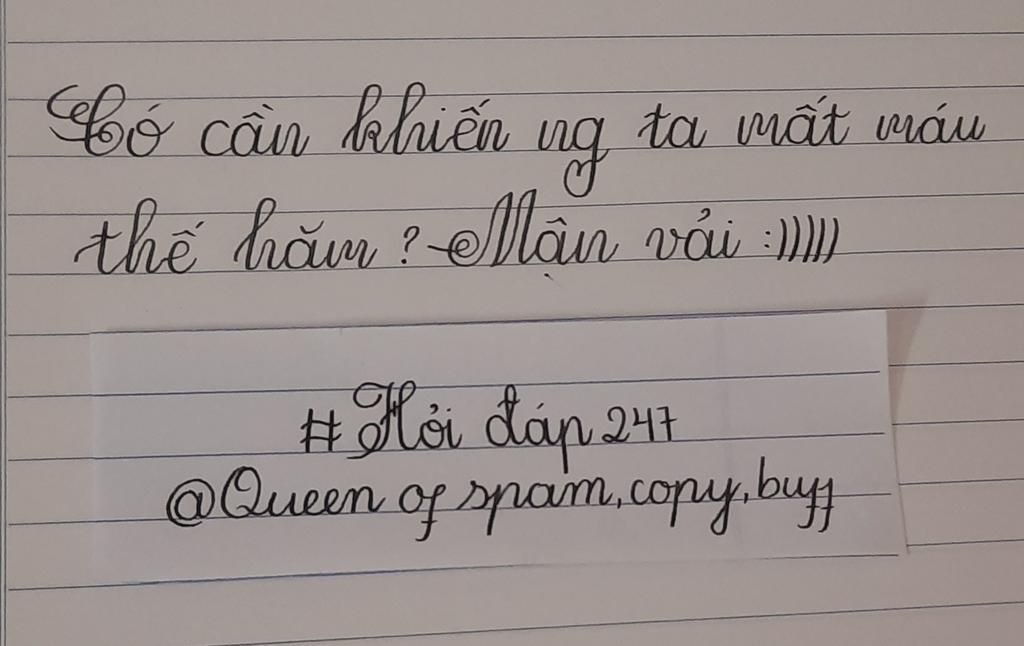 Có cần khiến ng ta mất máu
thế hăm? Mận vải :)))))
#Hỏi đáp 247
@Queen of spam,copy,buff